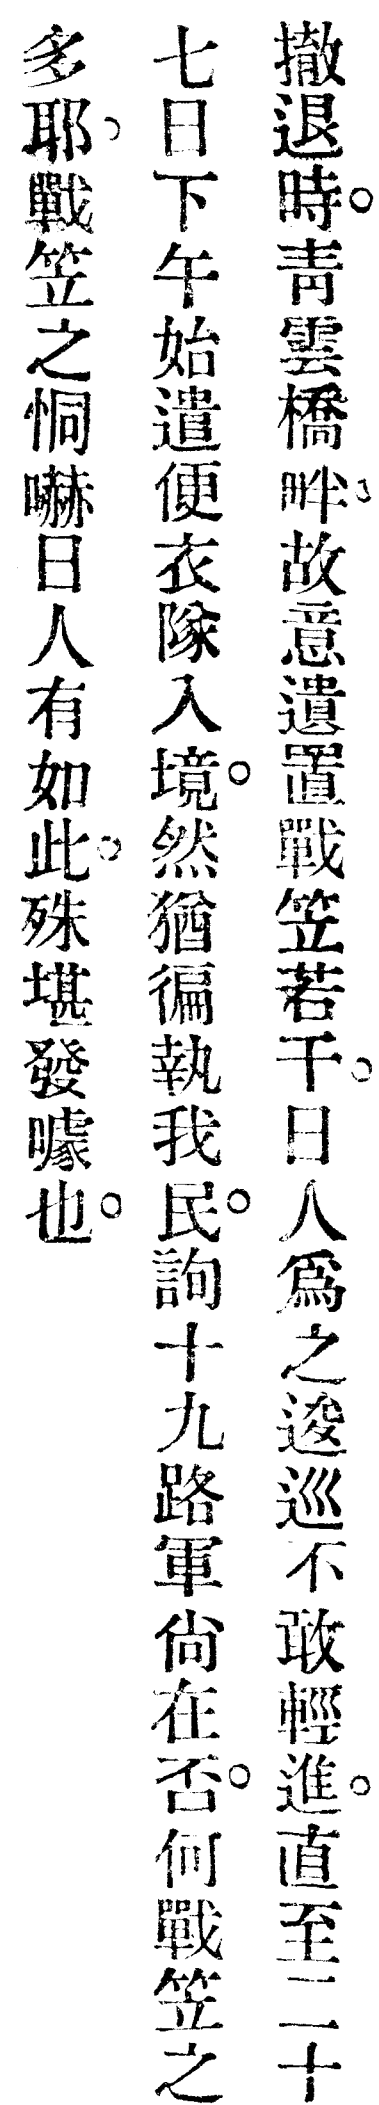 撤退時。青雲橋畔。故意遺置戰笠若干。日人爲之逡巡不敢輕進。直至二十
七日下午始遣便衣隊入境。然猶徧執我民。詢十九路軍尙在否。何戰笠之
多耶。戰笠之恫嚇日人有如此。殊堪發噱也。